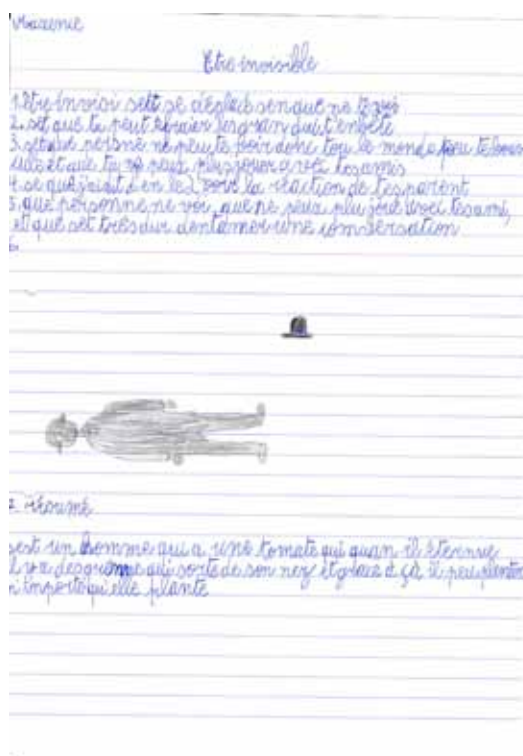 Maxence
Etre invisible
1. être invisi sett se déplacé sen que ne te voi
2. set que tu peut éfraier les gran qui t'enbête
3. set que persone ne peu te voir donc tou le monde peu te bous
culé et que tu ne peux plus jouer avec tes amis
4. se que j'ait en le voir la réaction de tes parent
5. que personne ne voi, que ne peux plu joué avec tes ami,
et que set très dur dentamer une conversation
6
2. résumé
sest un homme qui a une tomate qui quan il éternue
il va des graine qui sorte de son nez et grace à çà il peu planter
n'importe qu'elle plante